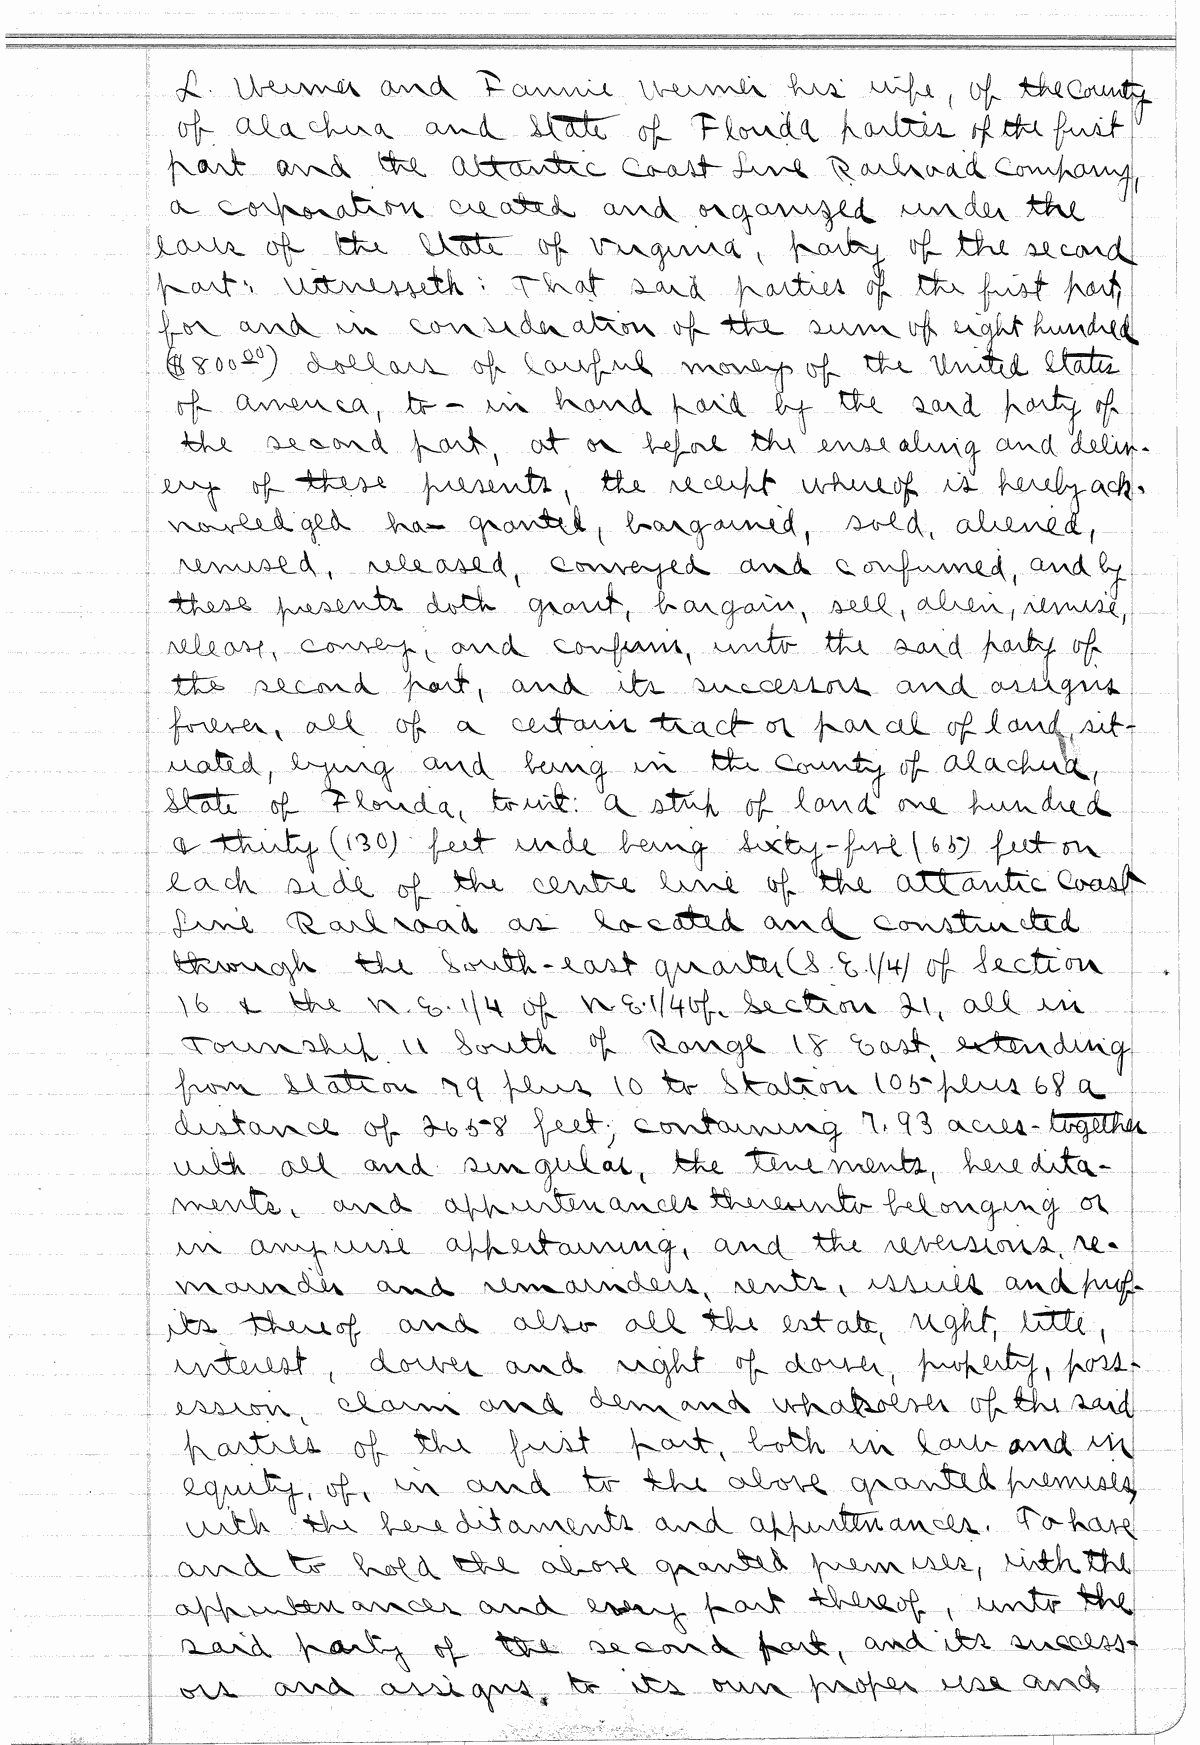 L. Weimer and Fannie Weimer his wife, of the County
of Alachua and State of Florida parties of the first
part and the Atlantic Coast Line Railroad Company,
a corporation created and organized under the
laws of the State of Virginia, party of the second
part: Witnesseth: That said parties of the first part,
for and in consideration of the sum of eight hundred
($800.00) dollars of lawful money of the United States
of America, to - in hand paid by the said party of
the second part, at or before the ensealing and deliv-
ery of these presents, the receipt whereof is hereby ack-
nowledged ha- granted, bargained, sold, aliened,
remised, released, conveyed and confirmed, and by
these presents doth grant, bargain, sell, alien, remise,
release, convey, and confirm, unto the said party of
the second part, and its successors and assigns
forever, all of a certain tract or parcel of land, sit-
uated, lying and being in the County of Alachua,
State of Florida, towit: A strip of land one hundred
& thirty (130) feet wide being sixty-five (65) feet on
each side of the centre line of the Atlantic Coast
Line Railroad as located and constructed
through the South-east quarter (S.E.1/4) of Section
16 & the N.E.1/4 of N.E.1/4 of Section 21, all in
Township 11 South of Range 18 East, extending
from Station 79 plus 10 to Station 105 plus 68 a
distance of 2658 feet; containing 7.93 acres - together
with all and singular, the tenements, heredita-
ments, and appurtenances thereunto belonging or
in anywise appertaining, and the reversions, re-
mainder and remainders, rents, issues and prof-
its thereof and also all the estate, right, title,
interest, dower and right of dower, property, poss-
ession, claim and demand whatsoever of the said
parties of the first part, both in law and in
equity, of, in and to the above granted premises,
with the hereditaments and appurtenances. To have
and to hold the above granted premises, with the
appurtenances and every part thereof, unto the
said party of the second part, and its success-
ors and assigns, to its own proper use and